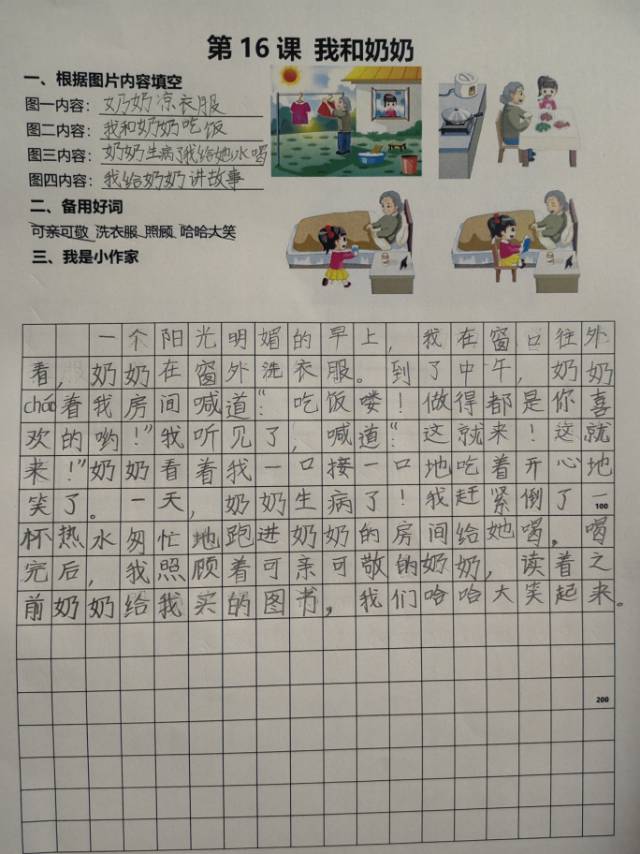 第 16 课 我和奶奶
一、根据图片内容填空
图一内容：奶奶凉衣服
图二内容：我和奶奶吃饭
图三内容：奶奶生病了我给她水喝
图四内容：我给奶奶讲故事
二、备用好词
可亲可敬 洗衣服 照顾 哈哈大笑
三、我是小作家
一个阳光明媚的早上，我在窗口往外
看，奶奶在窗外洗衣服。到了中午，奶奶
cháo着我房间喊道“：吃饭喽！做得都是你喜
欢的哟！”我听见了，喊道“：这就来！这就
来！”奶奶看着我一口接一口地吃着开心地
笑了。一天，奶奶生病了！我赶紧倒了一
100
怀热水匆忙地跑进奶奶的房间给她喝。喝
完后，我照顾着可亲可敬的奶奶，读着之
前奶奶给我买的图书，我们哈哈大笑起来。
200